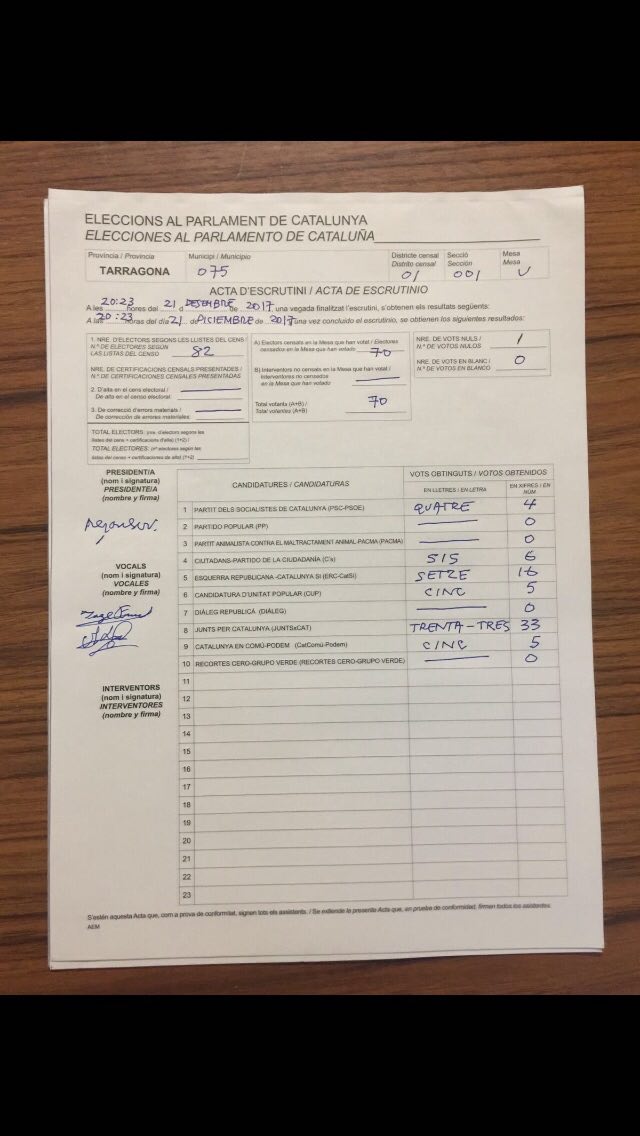 ELECCIONS AL PARLAMENT DE CATALUNYA
ELECCIONES AL PARLAMENTO DE CATALUÑA
Província / Provincia
TARRAGONA
Municipi / Municipio
075
Districte censal
Distrito censal
01
Secció
Sección
001
Mesa
Mesa
U
ACTA D'ESCRUTINI / ACTA DE ESCRUTINIO
A les 20:23 hores del 21 d DESEMBRE de 2017, una vegada finalitzat l'escrutini, s'obtenen els resultats següents:
A las 20:23 horas del día 21 de DICIEMBRE de 2017 una vez concluido el escrutinio, se obtienen los siguientes resultados:
1. NRE. D'ELECTORS SEGONS LES LLISTES DEL CENS /
N.º DE ELECTORES SEGÚN
LAS LISTAS DEL CENSO
82
NRE. DE CERTIFICACIONS CENSALS PRESENTADES /
N.º DE CERTIFICACIONES CENSALES PRESENTADAS
2. D'alta en el cens electoral /
De alta en el censo electoral:
3. De correcció d'errors materials /
De corrección de errores materiales:
TOTAL ELECTORS: (nre. d'electors segons les
llistes del cens + certificacions d'alta) (1+2) /
TOTAL ELECTORES: (nº electores según las
listas del censo + certificaciones de alta) (1+2)
A) Electors censats en la Mesa que han votat / Electores
censados en la Mesa que han votado
70
B) Interventors no censats en la Mesa que han votat /
Interventores no censados
en la Mesa que han votado
Total votants (A+B) /
Total votantes (A+B)
70
NRE. DE VOTS NULS /
N.º DE VOTOS NULOS
1
NRE. DE VOTS EN BLANC /
N.º DE VOTOS EN BLANCO
0
PRESIDENT/A
(nom i signatura)
PRESIDENTE/A
(nombre y firma)
VOCALS
(nom i signatura)
VOCALES
(nombre y firma)
INTERVENTORS
(nom i signatura)
INTERVENTORES
(nombre y firma)
CANDIDATURES / CANDIDATURAS
VOTS OBTINGUTS / VOTOS OBTENIDOS
EN LLETRES / EN LETRA
EN XIFRES / EN NÚM
1 PARTIT DELS SOCIALISTES DE CATALUNYA (PSC-PSOE) QUATRE 4
2 PARTIDO POPULAR (PP) 0
3 PARTIT ANIMALISTA CONTRA EL MALTRACTAMENT ANIMAL-PACMA (PACMA) 0
4 CIUTADANS-PARTIDO DE LA CIUDADANÍA (C's) SIS 6
5 ESQUERRA REPUBLICANA -CATALUNYA SÍ (ERC-CatSí) SETZE 16
6 CANDIDATURA D'UNITAT POPULAR (CUP) CINC 5
7 DIÀLEG REPUBLICÀ (DIÀLEG) 0
8 JUNTS PER CATALUNYA (JUNTSxCAT) TRENTA-TRES 33
9 CATALUNYA EN COMÚ-PODEM (CatComú-Podem) CINC 5
10 RECORTES CERO-GRUPO VERDE (RECORTES CERO-GRUPO VERDE) 0
11
12
13
14
15
16
17
18
19
20
21
22
23
S'estén aquesta Acta que, com a prova de conformitat, signen tots els assistents. / Se extiende la presente Acta que, en prueba de conformidad, firmen todos los asistentes.
AEM